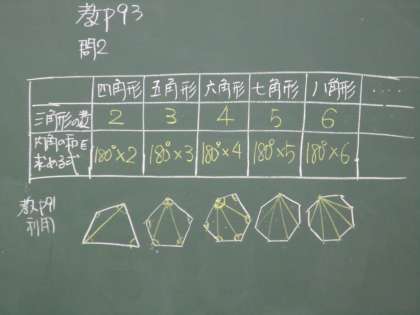 教p93
問2
四角形 五角形 六角形 七角形 八角形 ....
三角形の数 2 3 4 5 6
内角の和を求める式 180°×2 180°×3 180°×4 180°×5 180°×6
教p91
利用